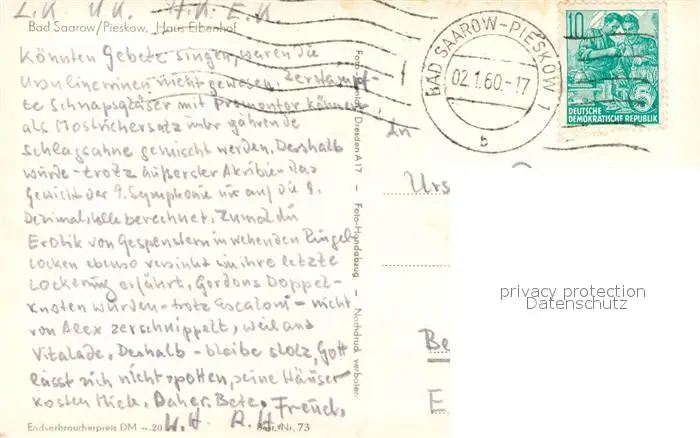 L.K U.K. H.K. E.K
Bad Saarow/Pieskow. Haus Eibenhof
Könnten Gebete singen, wären die
Ursulinerinnen nicht gewesen. Zerstampf-
te Schnapsgläser mit
als Mostrichersatz gährende
Schlagsahne gemischt werden. Deshalb
würde - trotz äußerster Akribie - das
Gewicht der 9. Symphonie nur auf die 8.
Dezimalstelle berechnet, zumal die
Erotik von Gespenstern in wehenden Ringel-
locken ebenso versinkt wie ihre letzte
Lockerung erfährt. Gordons Doppel-
knoten wurden - trotz - nicht
von Alex zerschnippelt, weil
Deshalb - bleibe stolz, Gott
lässt sich nicht spotten, seine Häuser
kosten Miete. Daher, Bete, Freund.
W.H. R.H.
Endverbraucherpreis DM --.20
Best.-Nr. 73
Dresden A 17 — Foto-Handabzug — Nachdruck verboten
BAD SAAROW-PIESKOW 1
02.1.60.-17
b
10
5
DEUTSCHE
DEMOKRATISCHE REPUBLIK
An
Urs
Be
E
privacy protection
Datenschutz